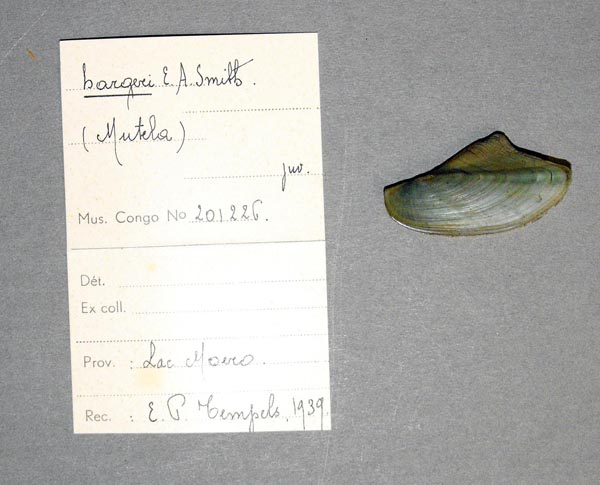 hargeri E. A. Smith.
(Mutela)
juv.
Mus. Congo No 201226.
Dét.
Ex coll.
Prov. : Lac Moero.
Rec. : E. P. Tempels, 1939